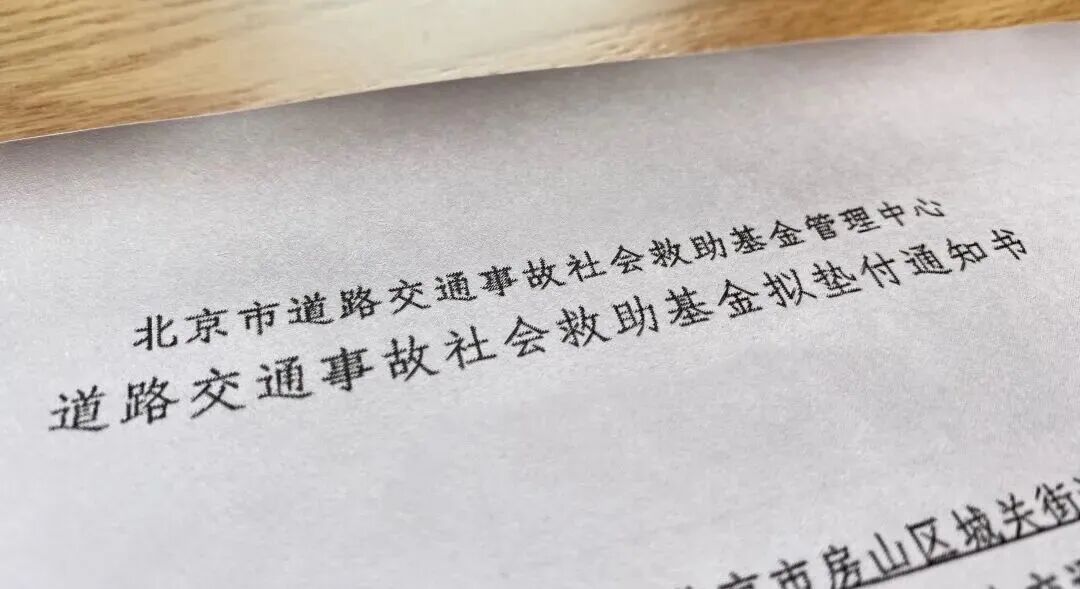 北京市道路交通事故社会救助基金管理中心
道路交通事故社会救助基金拟垫付通知书
京市房山区城关街道